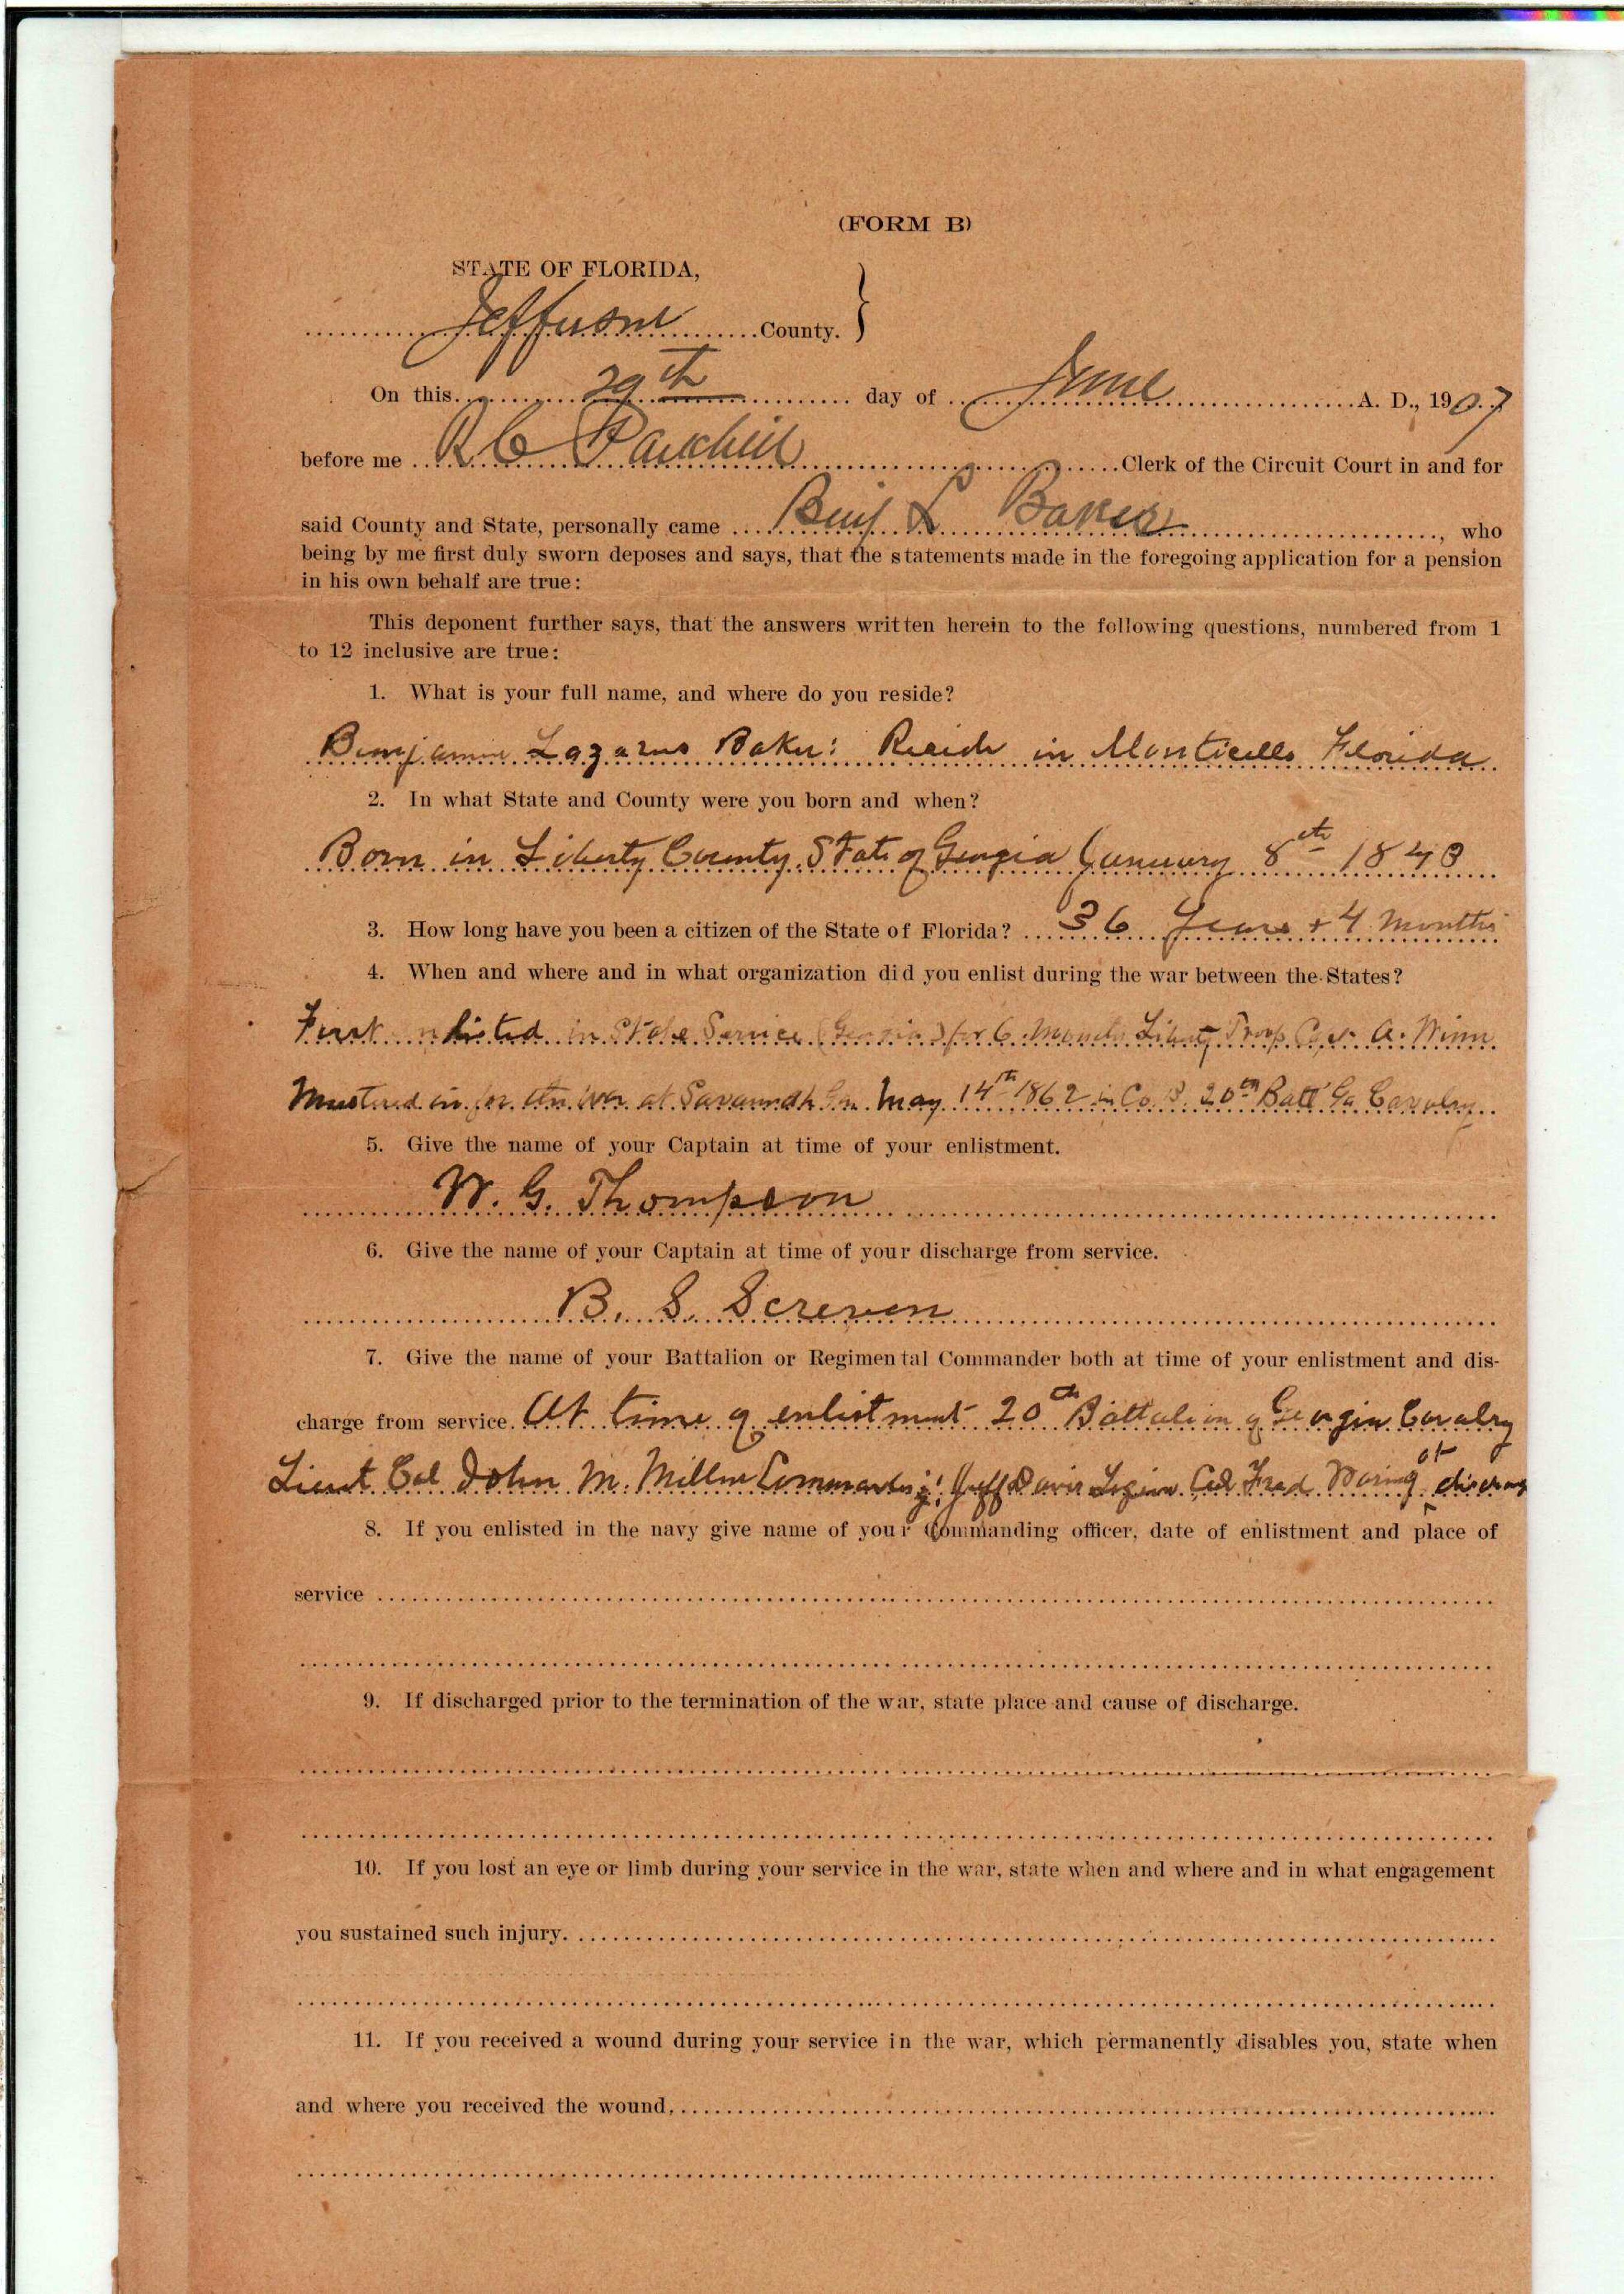 (FORM B)
STATE OF FLORIDA,
Jefferson County.
On this 29th day of June A. D., 1907
before me R C Clerk of the Circuit Court in and for
said County and State, personally came Benj L Baker, who
being by me first duly sworn deposes and says, that the statements made in the foregoing application for a pension
in his own behalf are true:
This deponent further says, that the answers written herein to the following questions, numbered from 1
to 12 inclusive are true:
1. What is your full name, and where do you reside?
Benjamin Lazarus Baker: Reside in Monticello Florida
2. In what State and County were you born and when?
Born in Liberty County State of Georgia January 8th
3. How long have you been a citizen of the State of Florida? 36 Years + 4 Months
4. When and where and in what organization did you enlist during the war between the States?
First enlisted in State Service (Georgia) for 6 Months Liberty Troop Capt A. Winn
Mustered in for the War at Savannah Ga. May 14th 1862 in Co. B. 20th Batt Ga Cavalry
5. Give the name of your Captain at time of your enlistment.
W. G. Thompson
6. Give the name of your Captain at time of your discharge from service.
B. S. Screven
7. Give the name of your Battalion or Regimental Commander both at time of your enlistment and dis-
charge from service. At time of enlistment 20th Battalion of Georgia Cavalry
Lieut Col John M. Millen Commanding: Jeff Davis Legion Col Fred Waring at discharg
8. If you enlisted in the navy give name of your Commanding officer, date of enlistment and place of
service
9. If discharged prior to the termination of the war, state place and cause of discharge.
10. If you lost an eye or limb during your service in the war, state when and where and in what engagement
you sustained such injury.
11. If you received a wound during your service in the war, which permanently disables you, state when
and where you received the wound,